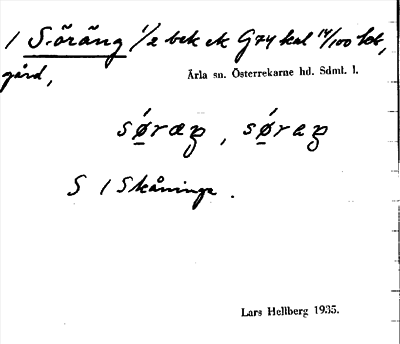 / S. öräng 1/2 bek ek G 74 kal 14/100 kb,
gård,
Ärla sn. Österrekarne hd. Sdml. l.
sǿraꞑ , sǿraꞑ
S / Skåninge .
Lars Hellberg 1935.